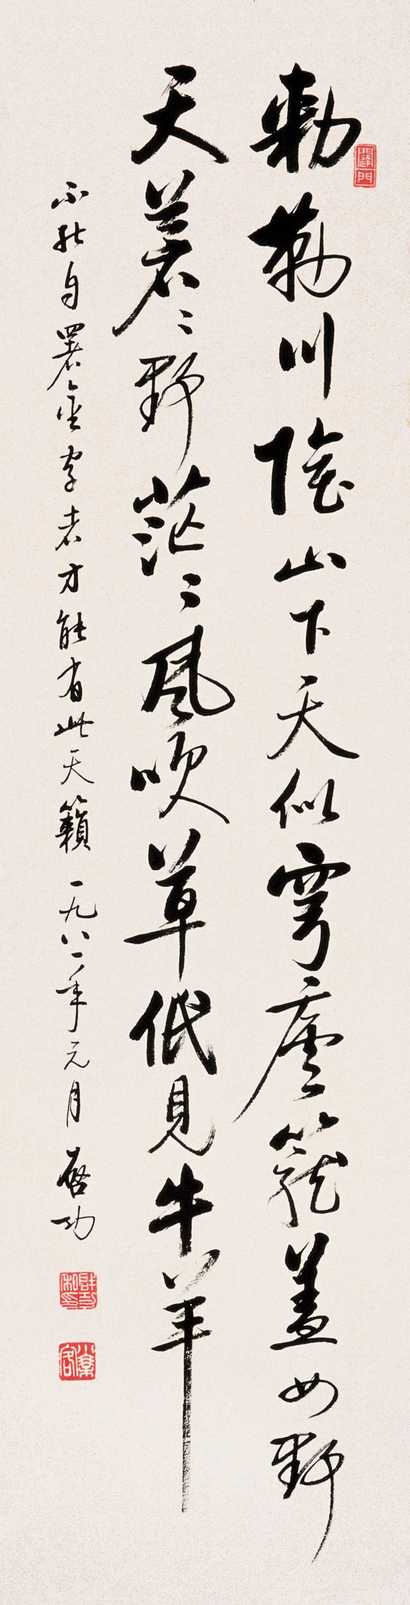 勅勒川陰山下天似穹廬籠蓋四野
天蒼〻野茫〻風吹草低見牛羊
不能自署金字者才能有此天籟 一九八一年元月 啓功